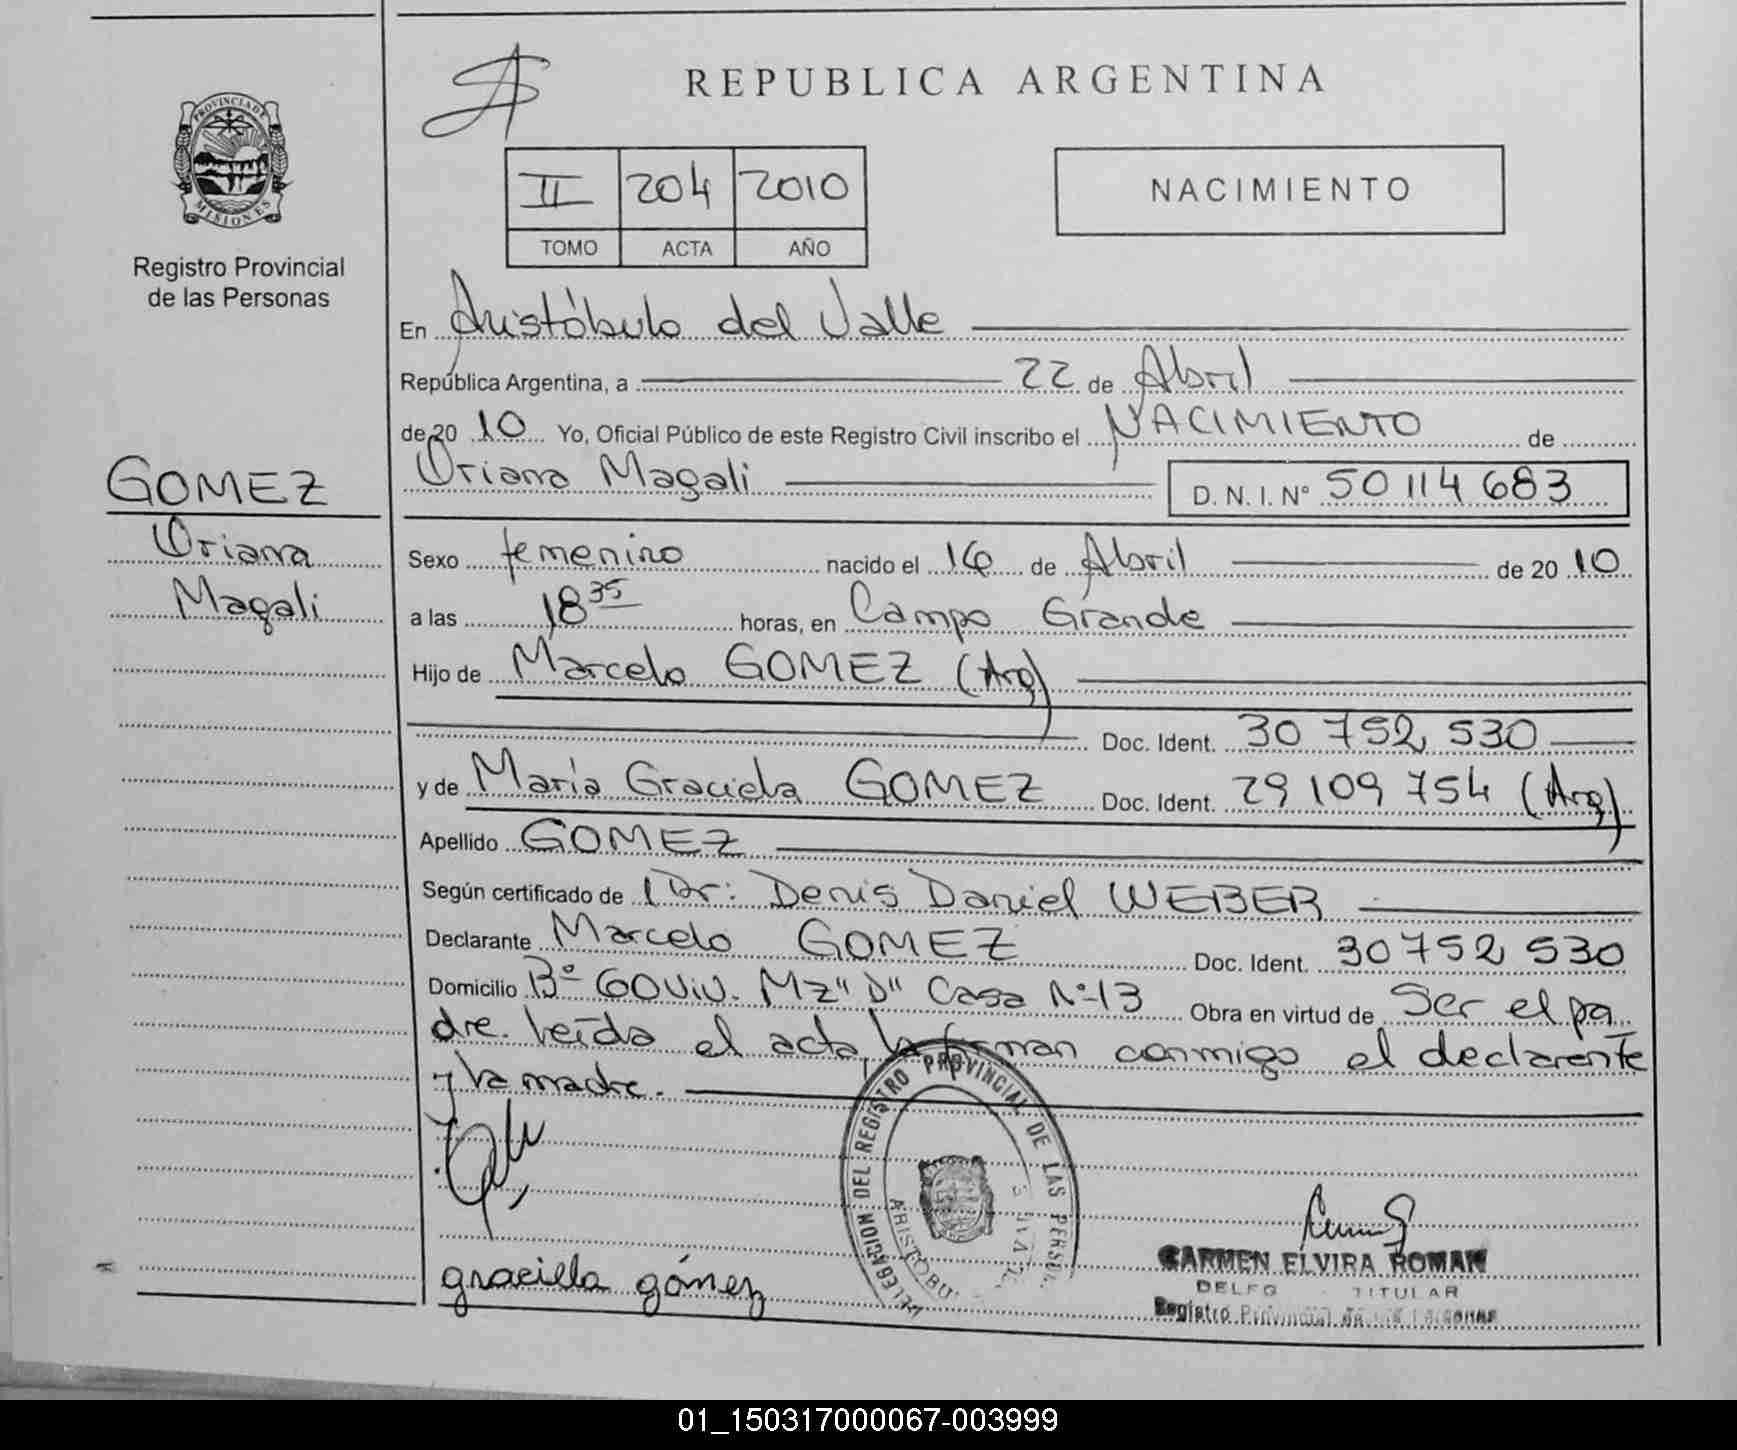 REPUBLICA ARGENTINA
PROVINCIA DE
MISIONES
Registro Provincial
de las Personas
II 204 2010
TOMO ACTA AÑO
NACIMIENTO
En Aristóbulo del Valle
República Argentina, a 22 de Abril
de 20 10 Yo, Oficial Público de este Registro Civil inscribo el NACIMIENTO de
Oriana Magali D. N. I. N° 50 114 683
GOMEZ
Oriana
Magali
Sexo femenino nacido el 16 de Abril de 20 10
a las 18 35 horas, en Campo Grande
Hijo de Marcelo GOMEZ (Arg)
Doc. Ident. 30 752 530
y de María Graciela GOMEZ Doc. Ident. 29 109 754 (Arg)
Apellido GOMEZ
Según certificado de Dr: Denis Daniel WEBER
Declarante Marcelo GOMEZ Doc. Ident. 30 752 530
Domicilio B° 60 Viv. Mz "D" Casa N°13 Obra en virtud de Ser el pa
dre. Leída el acta, la firman conmigo el declarante
y la madre.
DELEGACION DEL REGISTRO PROVINCIAL DE LAS
graciela gómez
CARMEN ELVIRA ROMAN
TITULAR
Registro Provincial
01_150317000067-003999